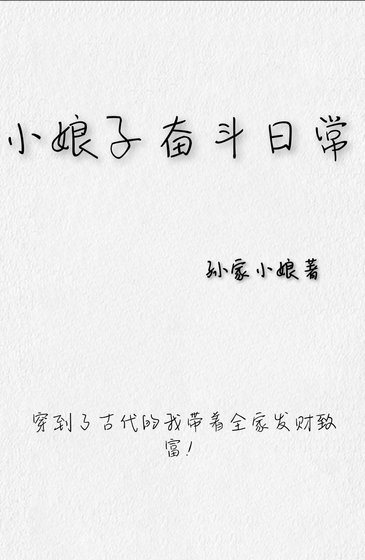 小娘子奋斗日常
孙家小娘著
穿到了古代的我带着全家发财致
富！